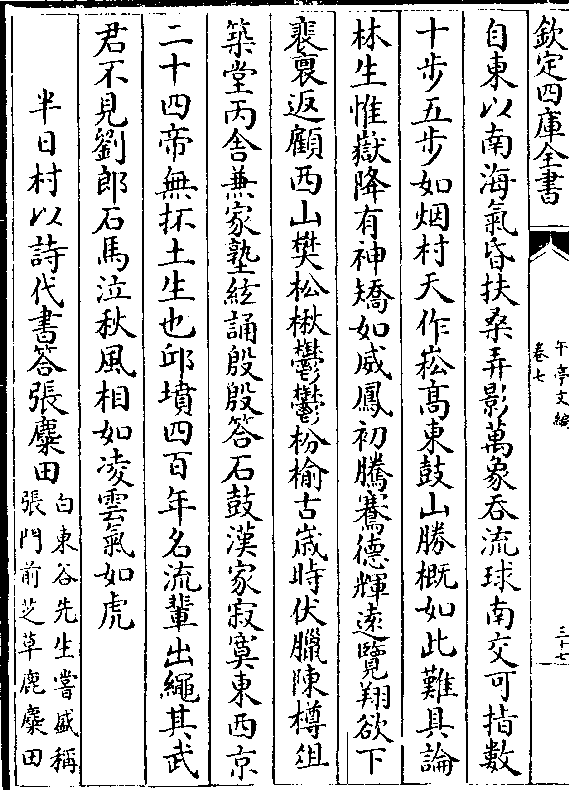 欽定四庫全書
午亭文編
卷七
三十七
自東以南海氣昏扶桑弄影萬象吞流球南交可指數
十步五步如烟村天作崧高東鼓山勝概如此難具論
林生惟嶽降有神矯如威鳳初騰騫德輝遠覽翔欲下
裴裒返顧西山樊松楸鬱鬱枌榆古歲時伏臘陳樽俎
築堂丙舍兼家塾絃誦殷殷答石鼓漢家寂寞東西京
二十四帝無抔土生也邱墳四百年名流輩出繩其武
君不見劉郎石馬泣秋風相如凌雲氣如虎
半日村以詩代書答張麋田
白東谷先生嘗盛稱
張門前芝草鹿麋田